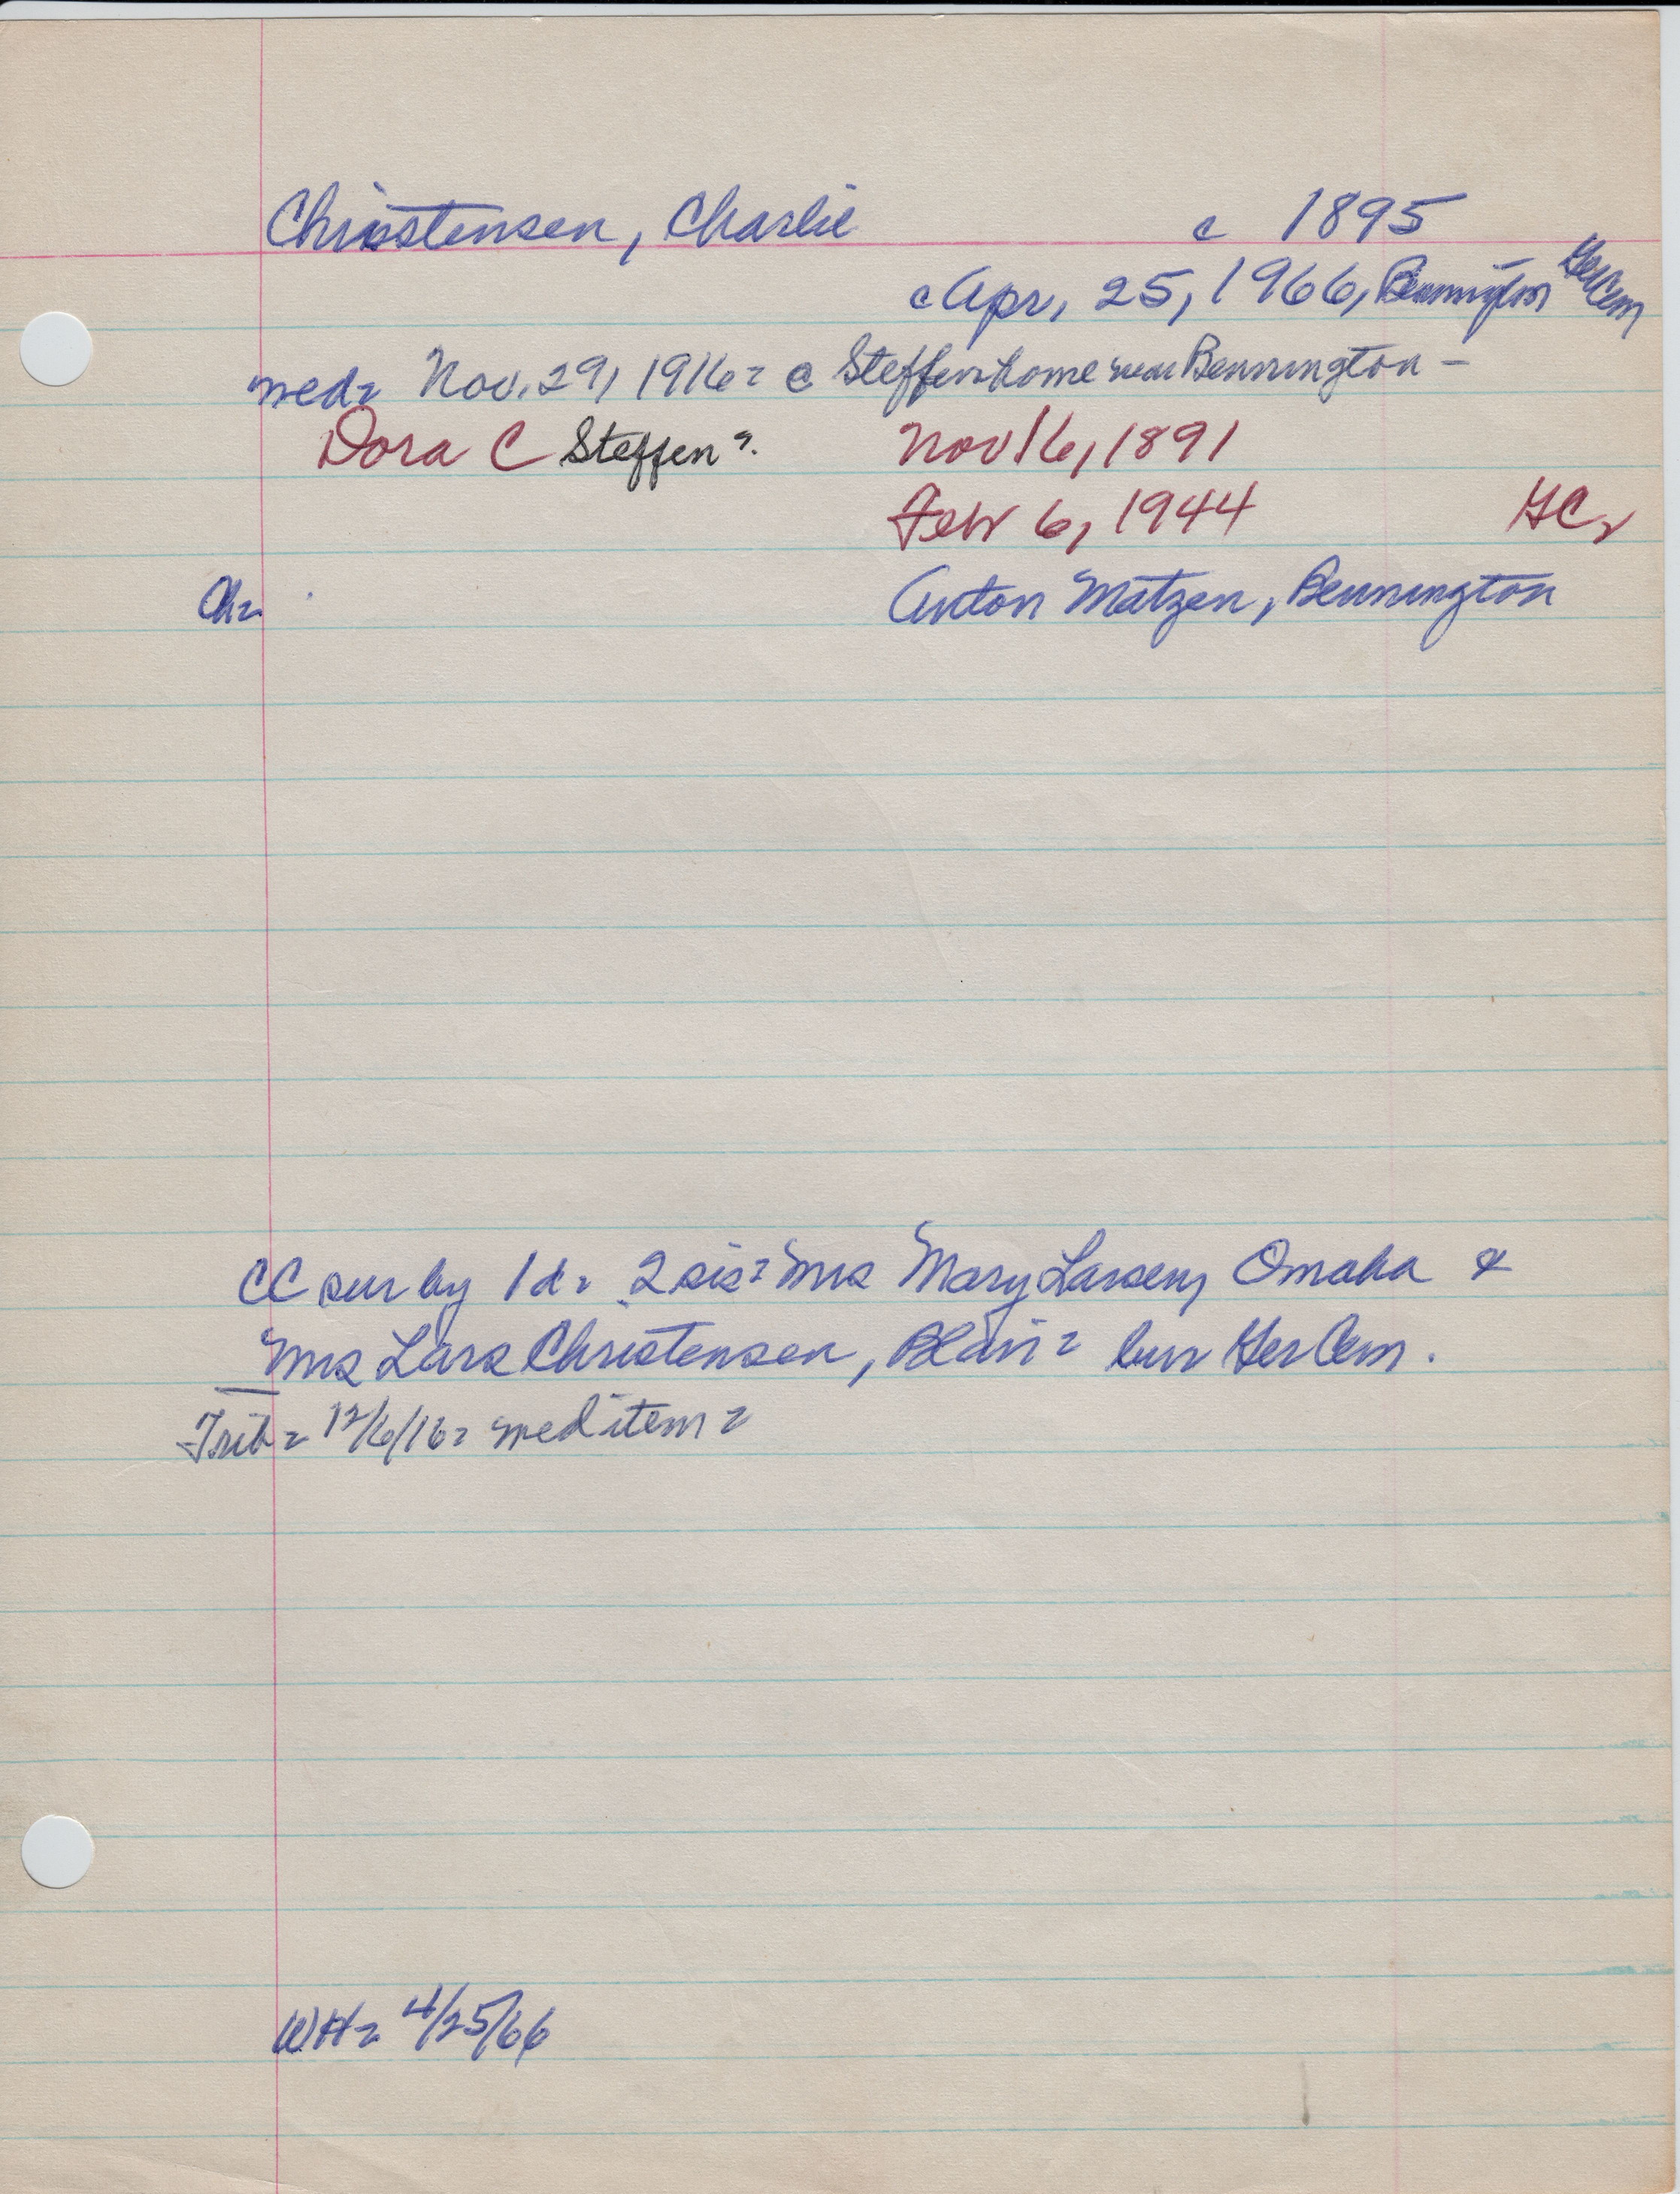 Christensen, Charlie c 1895
c Apr, 25, 1966, Bennington Ger Cem
med= Nov. 29, 1916= @ Steffen home near Bennington -
Dora C Steffen=. Nov 16, 1891
Febr 6, 1944 GC=
Ch= Anton Matzen, Bennington
CC sur by 1 d= 2 sis= Mrs Mary Larsen, Omaha &
Mrs Lars Christensen, Blair= bur Ger Cem.
Trib= 12/6/16= med item=
WH= 4/25/66